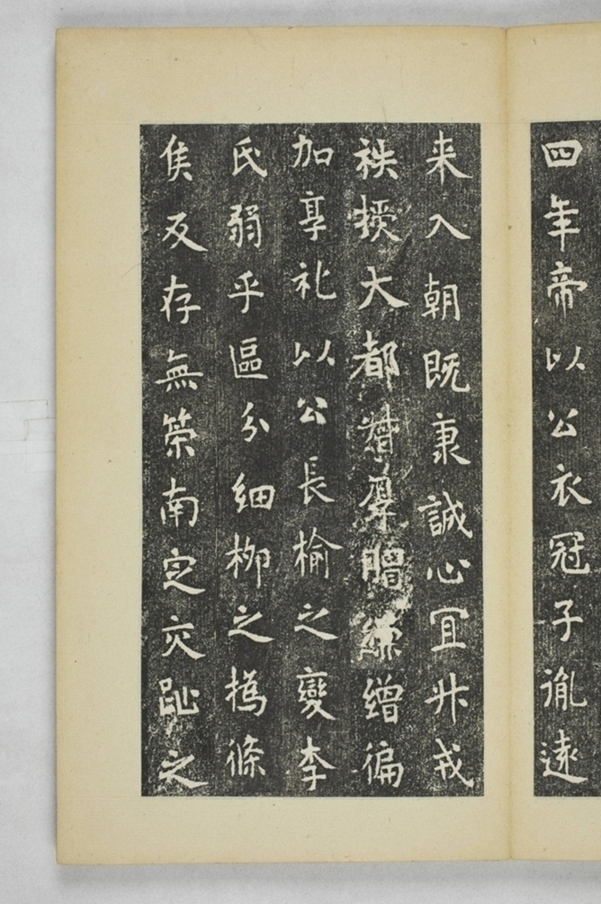 四年帝以公衣冠子胤遠
来入朝既秉誠心冝升戎
秩授大都督厚贈繒徧
加享礼以公長榆之變李
氏弱乎區分細柳之撝條
侯反存無榮南定灾趾之